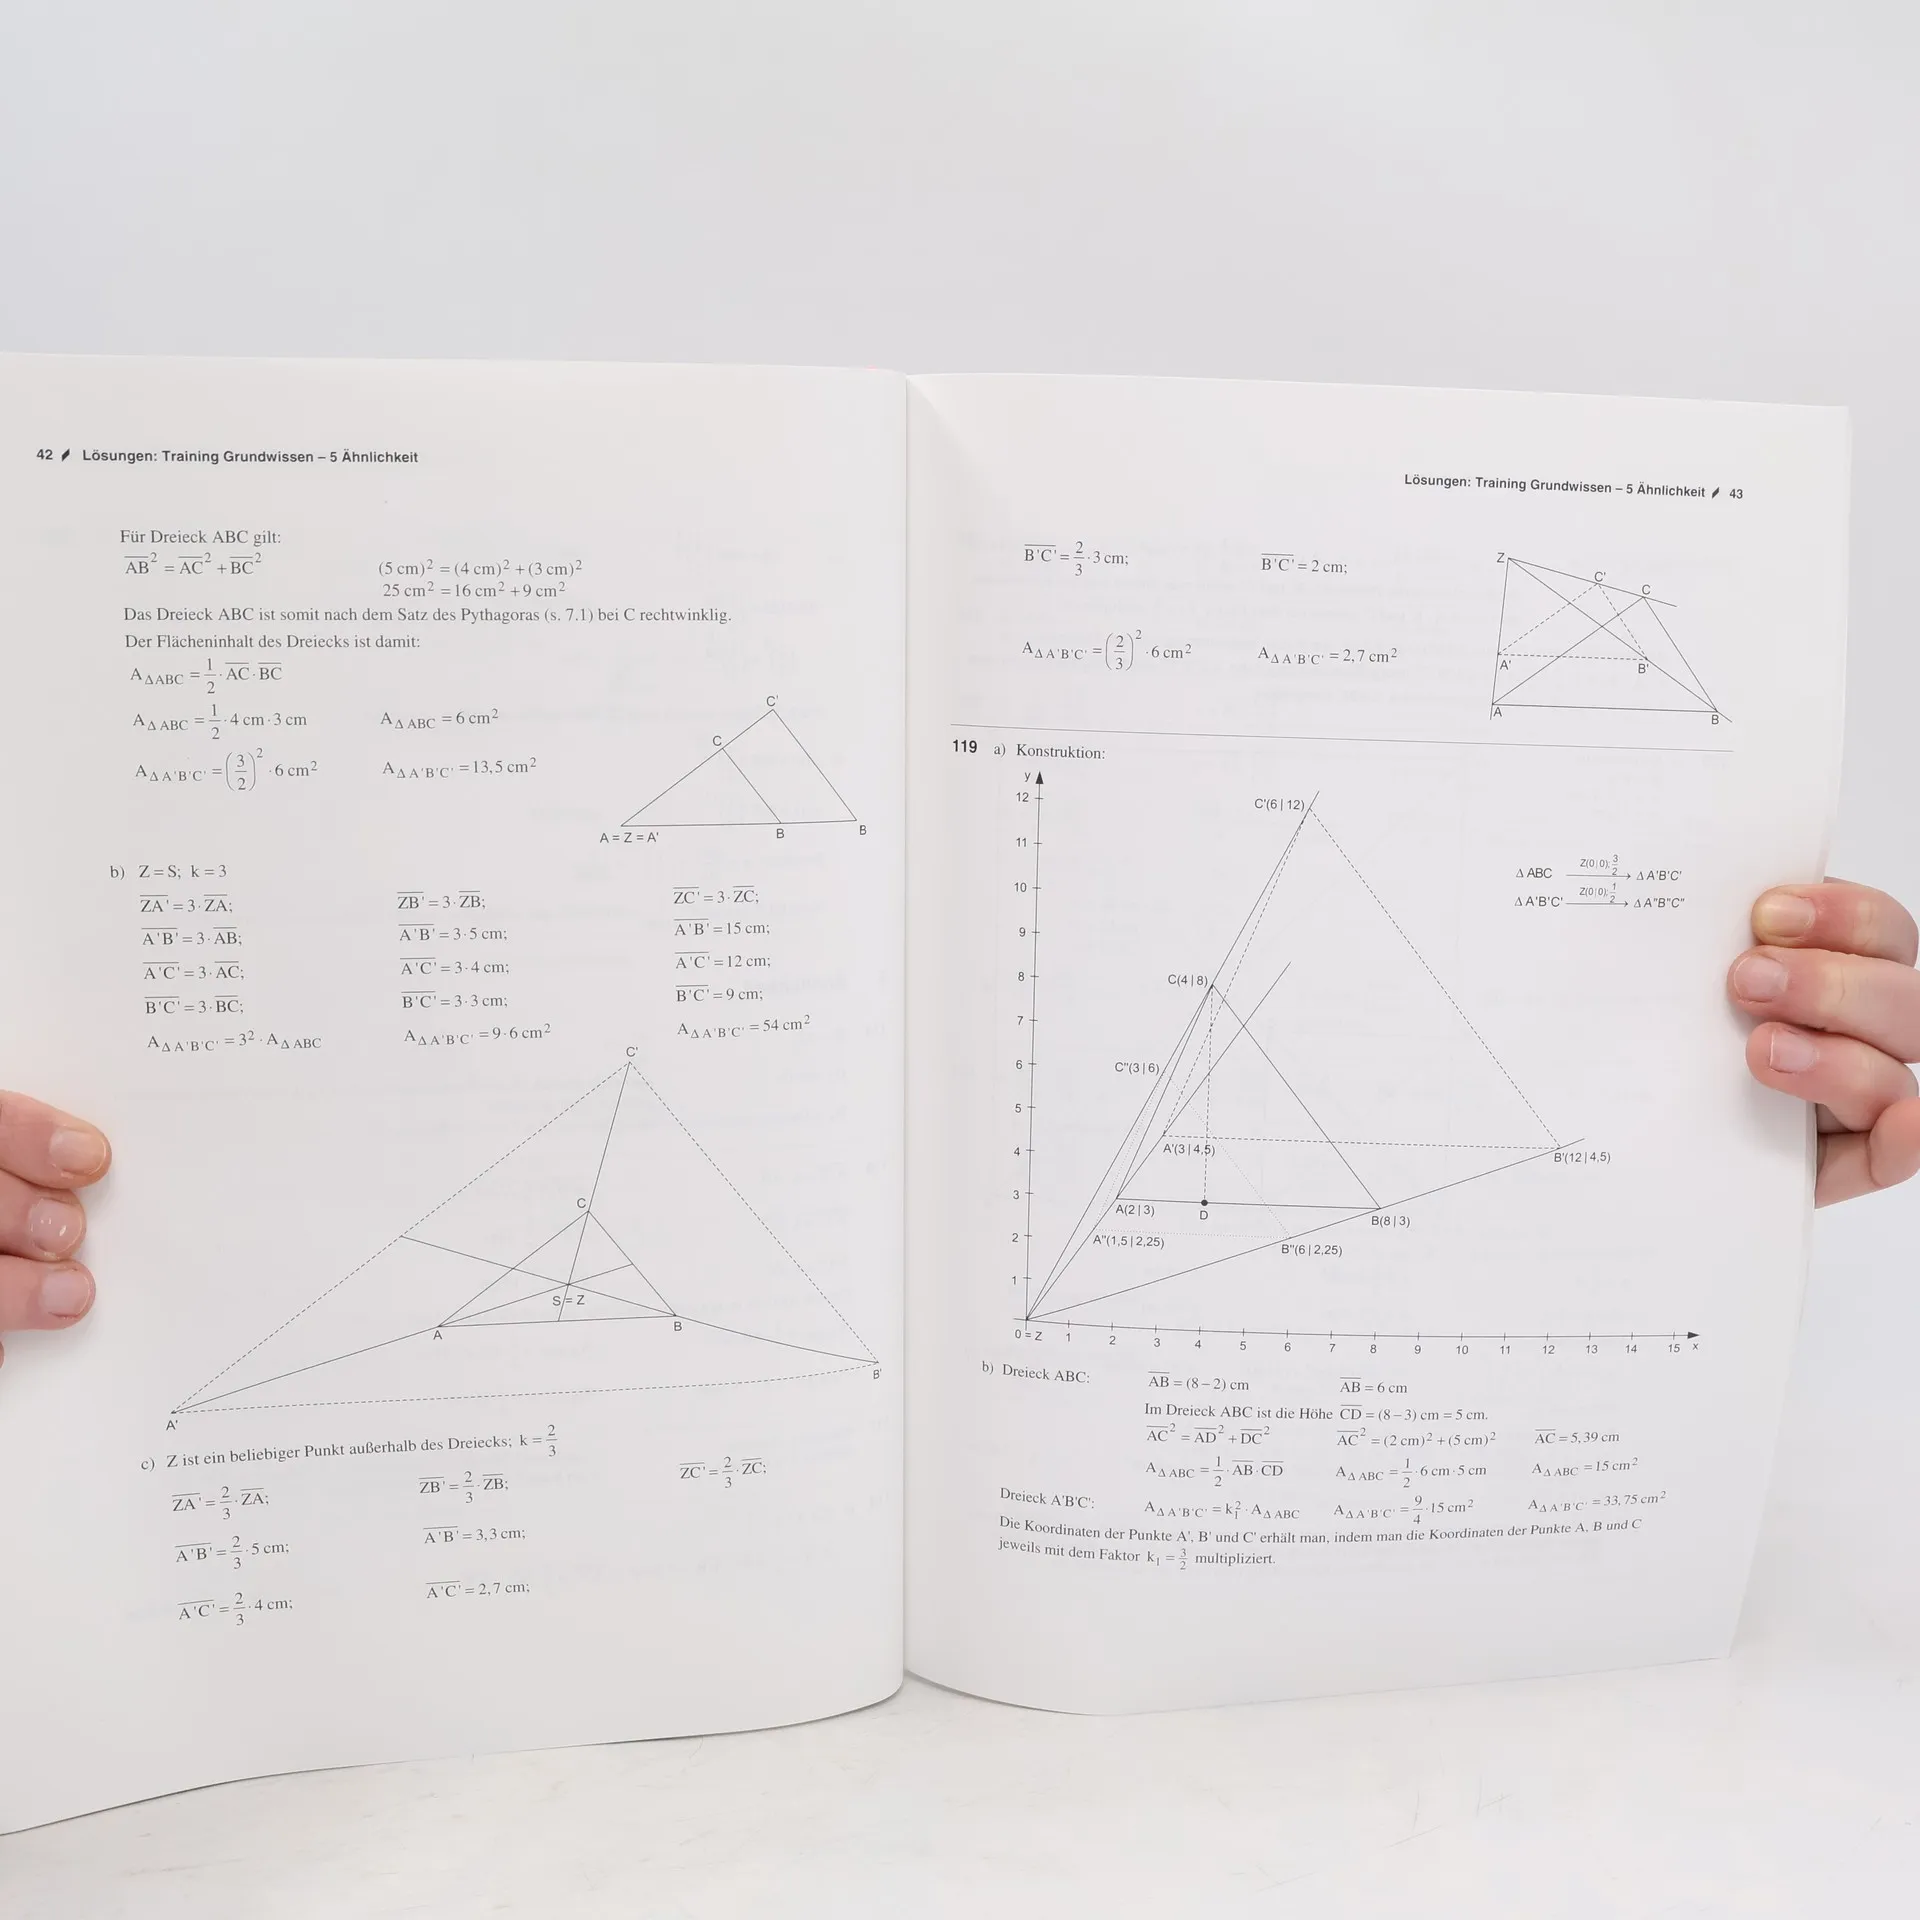 42 Lösungen: Training Grundwissen – 5 Ähnlichkeit
Für Dreieck ABC gilt:
A̅B̅² = A̅C̅² + B̅C̅² (5 cm)² = (4 cm)² + (3 cm)²
25 cm² = 16 cm² + 9 cm²
Das Dreieck ABC ist somit nach dem Satz des Pythagoras (s. 7.1) bei C rechtwinklig.
Der Flächeninhalt des Dreiecks ist damit:
A_ΔABC = 1/2 · A̅C̅ · B̅C̅
A_ΔABC = 1/2 · 4 cm · 3 cm A_ΔABC = 6 cm²
A_ΔA'B'C' = (3/2)² · 6 cm² A_ΔA'B'C' = 13,5 cm²
C'
C
A = Z = A' B B
b) Z = S; k = 3
Z̅A̅' = 3 · Z̅A̅; Z̅B̅' = 3 · Z̅B̅; Z̅C̅' = 3 · Z̅C̅;
A̅'B̅' = 3 · A̅B̅; A̅'B̅' = 3 · 5 cm; A̅'B̅' = 15 cm;
A̅'C̅' = 3 · A̅C̅; A̅'C̅' = 3 · 4 cm; A̅'C̅' = 12 cm;
B̅'C̅' = 3 · B̅C̅; B̅'C̅' = 3 · 3 cm; B̅'C̅' = 9 cm;
A_ΔA'B'C' = 3² · A_ΔABC A_ΔA'B'C' = 9 · 6 cm² A_ΔA'B'C' = 54 cm²
C'
C
S = Z
A B
B'
A'
c) Z ist ein beliebiger Punkt außerhalb des Dreiecks; k = 2/3
Z̅A̅' = 2/3 · Z̅A̅; Z̅B̅' = 2/3 · Z̅B̅; Z̅C̅' = 2/3 · Z̅C̅;
A̅'B̅' = 2/3 · 5 cm; A̅'B̅' = 3,3 cm;
A̅'C̅' = 2/3 · 4 cm; A̅'C̅' = 2,7 cm;
Lösungen: Training Grundwissen – 5 Ähnlichkeit 43
B̅'C̅' = 2/3 · 3 cm; B̅'C̅' = 2 cm;
A_ΔA'B'C' = (2/3)² · 6 cm² A_ΔA'B'C' = 2,7 cm²
Z
C' C
A' B'
A B
119 a) Konstruktion:
y
12
11
10
9
8
7
6
5
4
3
2
1
C'(6|12)
C(4|8)
C''(3|6)
A'(3|4,5)
B'(12|4,5)
A(2|3) D B(8|3)
A''(1,5|2,25) B''(6|2,25)
0 = Z 1 2 3 4 5 6 7 8 9 10 11 12 13 14 15 x
Δ ABC Z(0|0); 3/2 → Δ A'B'C'
Δ A'B'C' Z(0|0); 1/2 → Δ A''B''C''
b) Dreieck ABC: A̅B̅ = (8 – 2) cm A̅B̅ = 6 cm
Im Dreieck ABC ist die Höhe C̅D̅ = (8 – 3) cm = 5 cm.
A̅C̅² = A̅D̅² + D̅C̅² A̅C̅² = (2 cm)² + (5 cm)² A̅C̅ = 5,39 cm
A_ΔABC = 1/2 · A̅B̅ · C̅D̅ A_ΔABC = 1/2 · 6 cm · 5 cm A_ΔABC = 15 cm²
Dreieck A'B'C': A_ΔA'B'C' = k₁² · A_ΔABC A_ΔA'B'C' = 9/4 · 15 cm² A_ΔA'B'C' = 33,75 cm²
Die Koordinaten der Punkte A', B' und C' erhält man, indem man die Koordinaten der Punkte A, B und C
jeweils mit dem Faktor k₁ = 3/2 multipliziert.